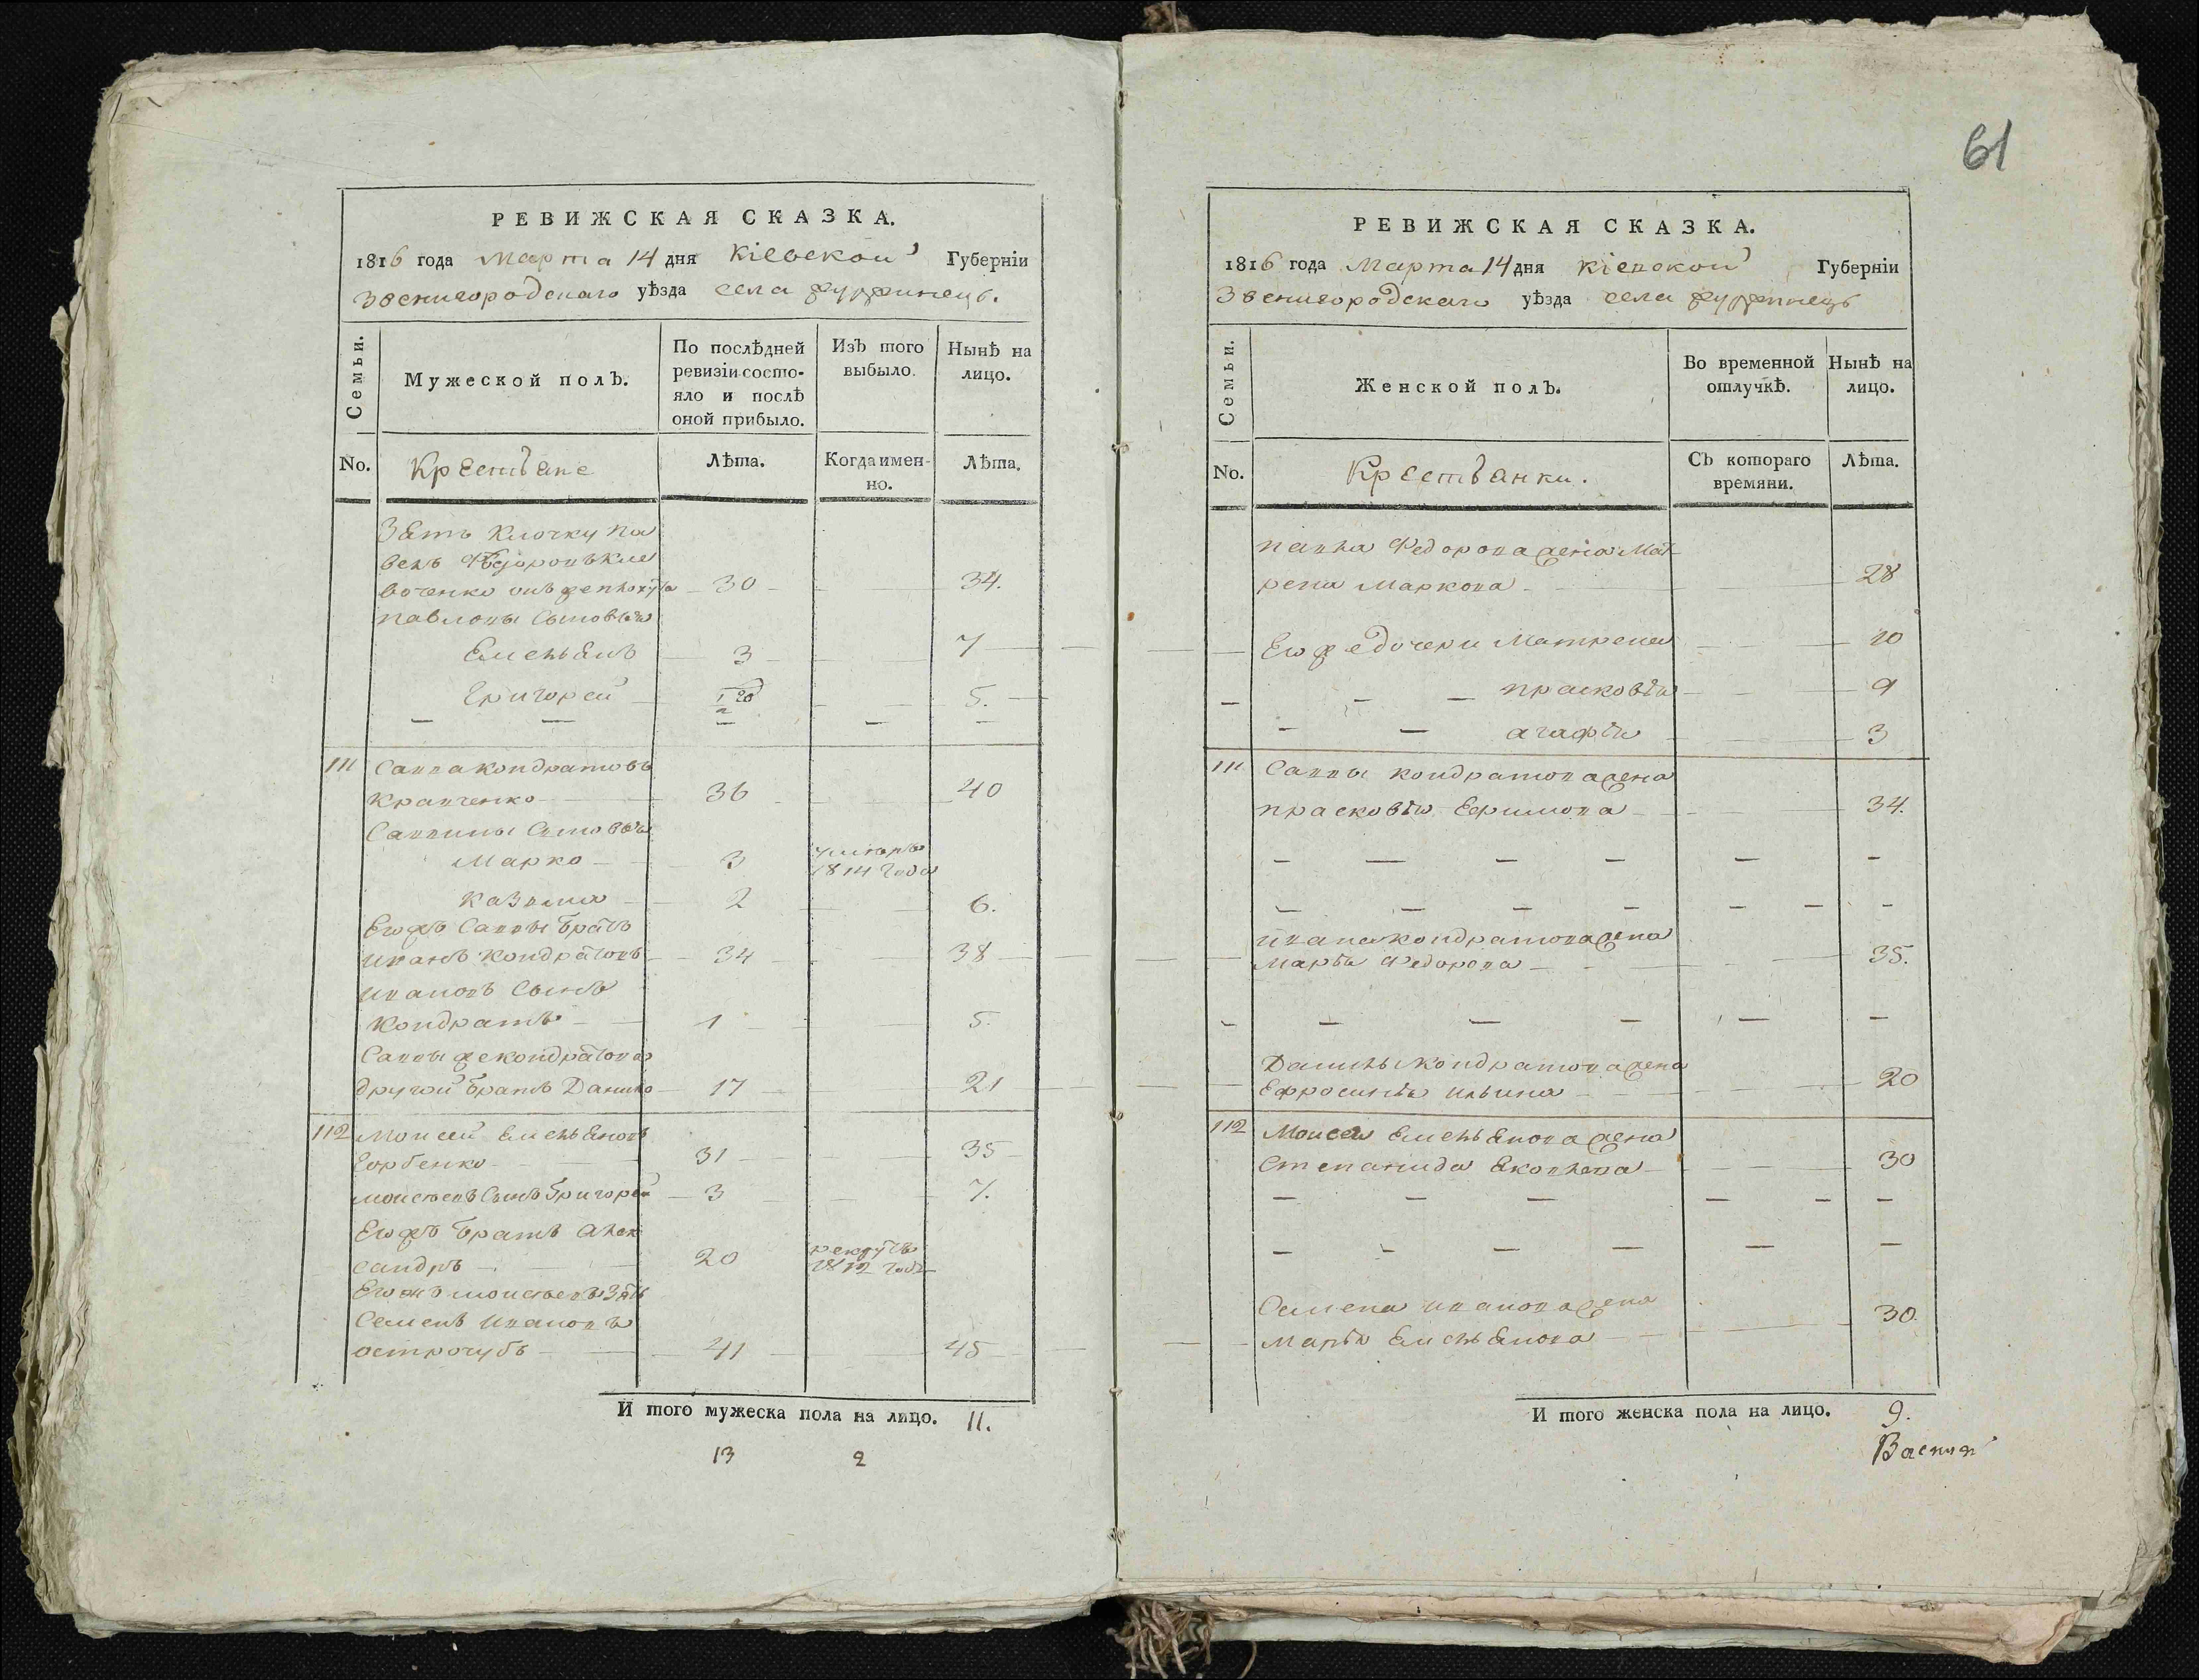 61
РЕВИЖСКАЯ СКАЗКА.
1816 года Марта 14 дня Кіевской Губерніи
Звенигородскаго уѣзда села
Семьи.
Мужеской полъ.
По послѣдней ревизіи состо-
яло и послѣ
оной прибыло.
Изъ того
выбыло.
Нынѣ на
лицо.
No.
Крестьяне
Лѣта.
Когда имен-
но.
Лѣта.
Зять Клочку Па
30 34.
Павловы Сыновья
Емельянъ 3 7
Григорей 5.
111 Савва Кондратовъ
Кравченко 36 40
Саввины Сыновья
Марко 3 умеръ
1814 года
Казьма 2 6.
Егожъ Саввы братъ
Иванъ Кондратовъ 34 38
Ивановъ Сынъ
Кондратъ 1 5.
Саввы же Кондратова
другой братъ Данило 17 21
112 Моисей Емельяновъ
Горбенко 31 35
Моисеевъ Сынъ Григорей 3 7.
Егожъ братъ Алек
сандръ 20 рекрутъ
1812 года
Егожъ Моисеевъ Зять
Семенъ Ивановъ
острогубъ 41 45
И того мужеска пола на лицо. 11.
13 2
РЕВИЖСКАЯ СКАЗКА.
1816 года Марта 14 дня Кіевской Губерніи
Звенигородскаго уѣзда села
Семьи.
Женской полъ.
Во временной
отлучкѣ.
Нынѣ на
лицо.
No.
Крестьянки.
Съ котораго
времяни.
Лѣта.
Павла Федорова жена Мат
рена Маркова 28
Его же дочери Матрена 10
Прасковья 9
Агафья 3
111 Саввы Кондратова жена
Прасковья Ефимова 34.
Ивана Кондратова жена
Марья Федорова 35.
Данилы Кондратова жена
Ефросинья Ильина 20
112 Моисея Емельянова жена
Степанида Яковлева 30
Семена Иванова жена
Марья Емельянова 30.
И того женска пола на лицо. 9.